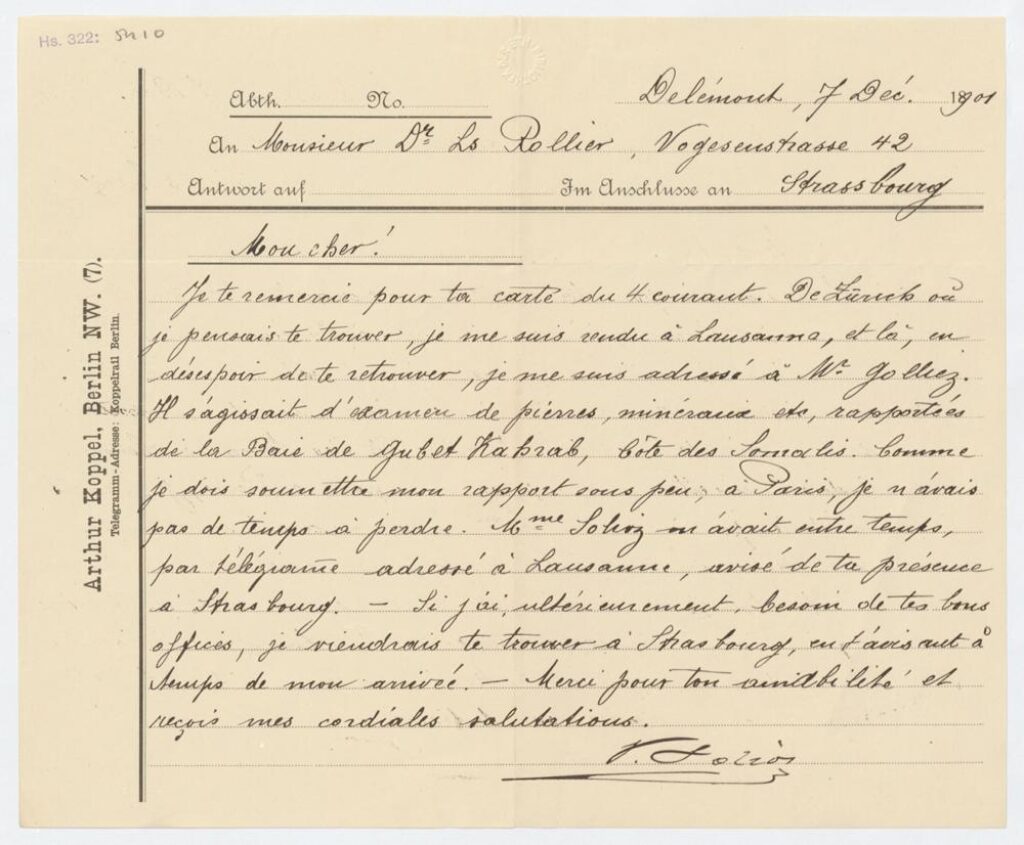 Hs. 322: 5410
Abth. No.
Delémont, 7 Déc. 1901
An Monsieur Dr Ls Rollier, Vogesenstrasse 42
Antwort auf Im Anschlusse an Strassbourg
Mon cher!
Je te remercie pour ta carte du 4 courant. De Zürich où
je pensais te trouver, je me suis rendu à Lausanna, et là, en
désespoir de te retrouver, je me suis adressé à Mr. Golliez.
Il s'agissait d'examen de pierres, minéraux etc, rapportées
de la Baie de Gubet Kahrab, Côte des Somalis. Comme
je dois soumettre mon rapport sous peu, à Paris, je n'avais
pas de temps à perdre. Mme m'avait entre temps,
par télégrame adressé à Lausanne, avisé de ta présence
à Strasbourg. — Si j'ai, ultérieurement, besoin de tes bons
offices, je viendrais te trouver à Strasbourg, en t'avisant à
temps de mon arrivée. — Merci pour ton amabilité et
reçois mes cordiales salutations.
Arthur Koppel, Berlin NW. (7).
Telegramm-Adresse: Koppelrail Berlin.